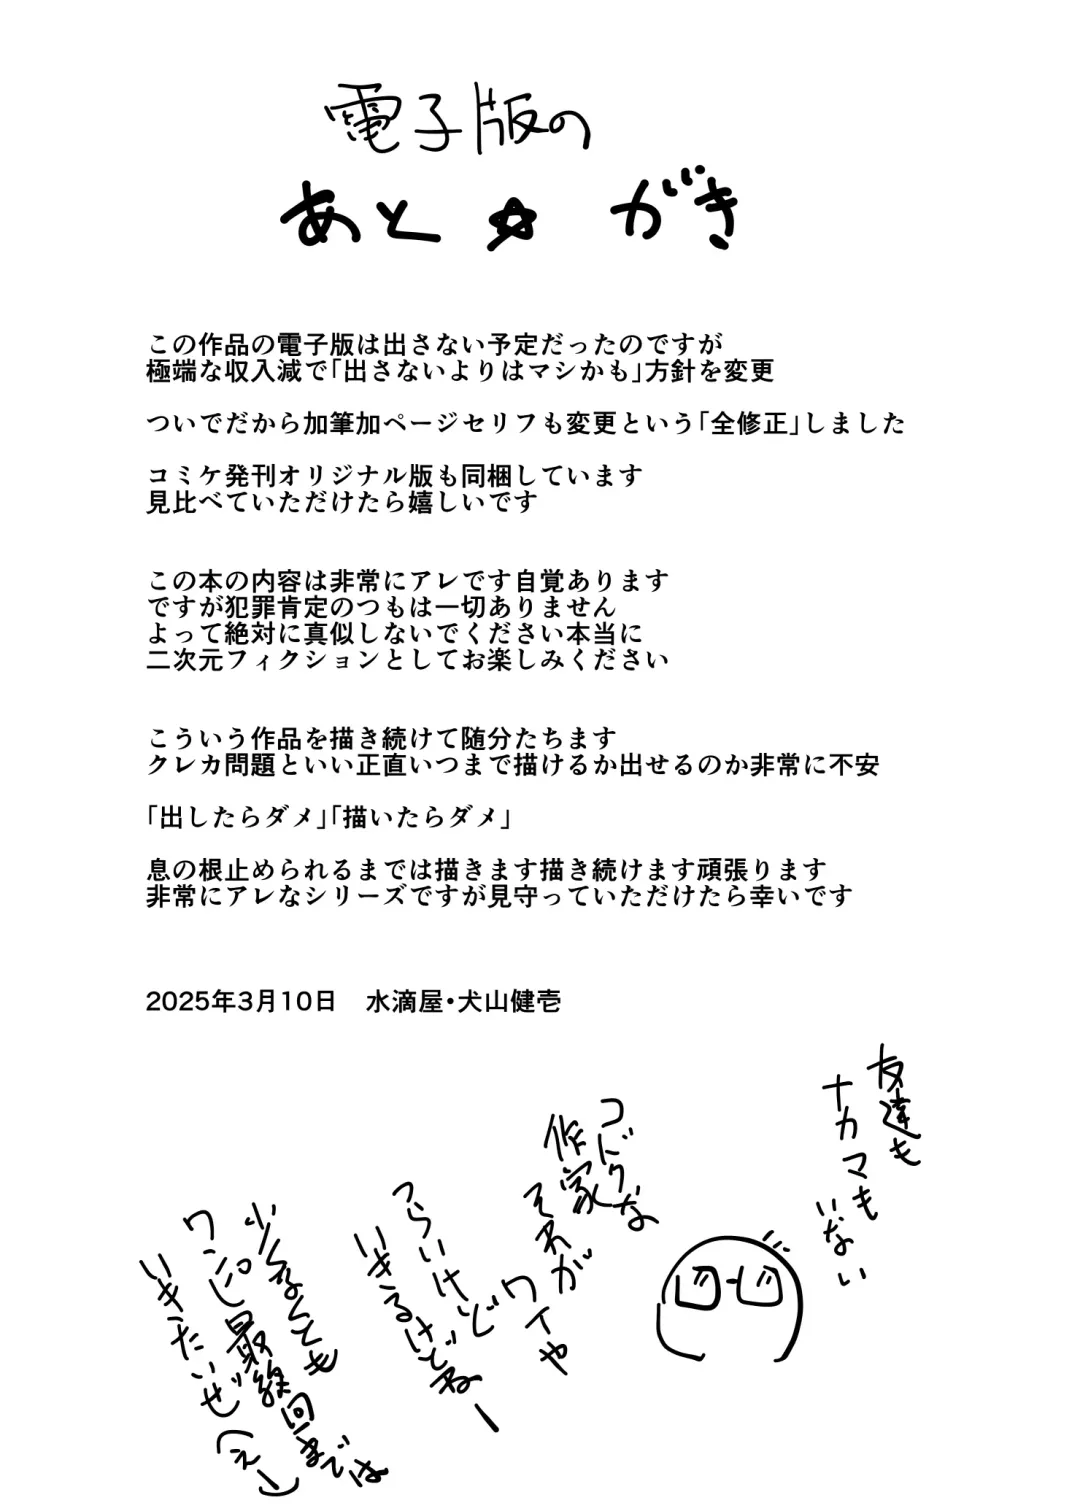 電子版の
あと☆がき
この作品の電子版は出さない予定だったのですが
極端な収入減で「出さないよりはマシかも」方針を変更
ついでだから加筆加ページセリフも変更という「全修正」しました
コミケ発刊オリジナル版も同梱しています
見比べていただけたら嬉しいです
この本の内容は非常にアレです自覚あります
ですが犯罪肯定のつもは一切ありません
よって絶対に真似しないでください本当に
二次元フィクションとしてお楽しみください
こういう作品を描き続けて随分たちます
クレカ問題といい正直いつまで描けるか出せるのか非常に不安
「出したらダメ」「描いたらダメ」
息の根止められるまでは描きます描き続けます頑張ります
非常にアレなシリーズですが見守っていただけたら幸いです
2025年3月10日 水滴屋・犬山健壱
友達も
ナカマも
いない
コドクな
作家
それが
ワイや
つらいけど
いきるけどねー
少なくとも
ワンピ最終回までは
いきたいぜ(えー)